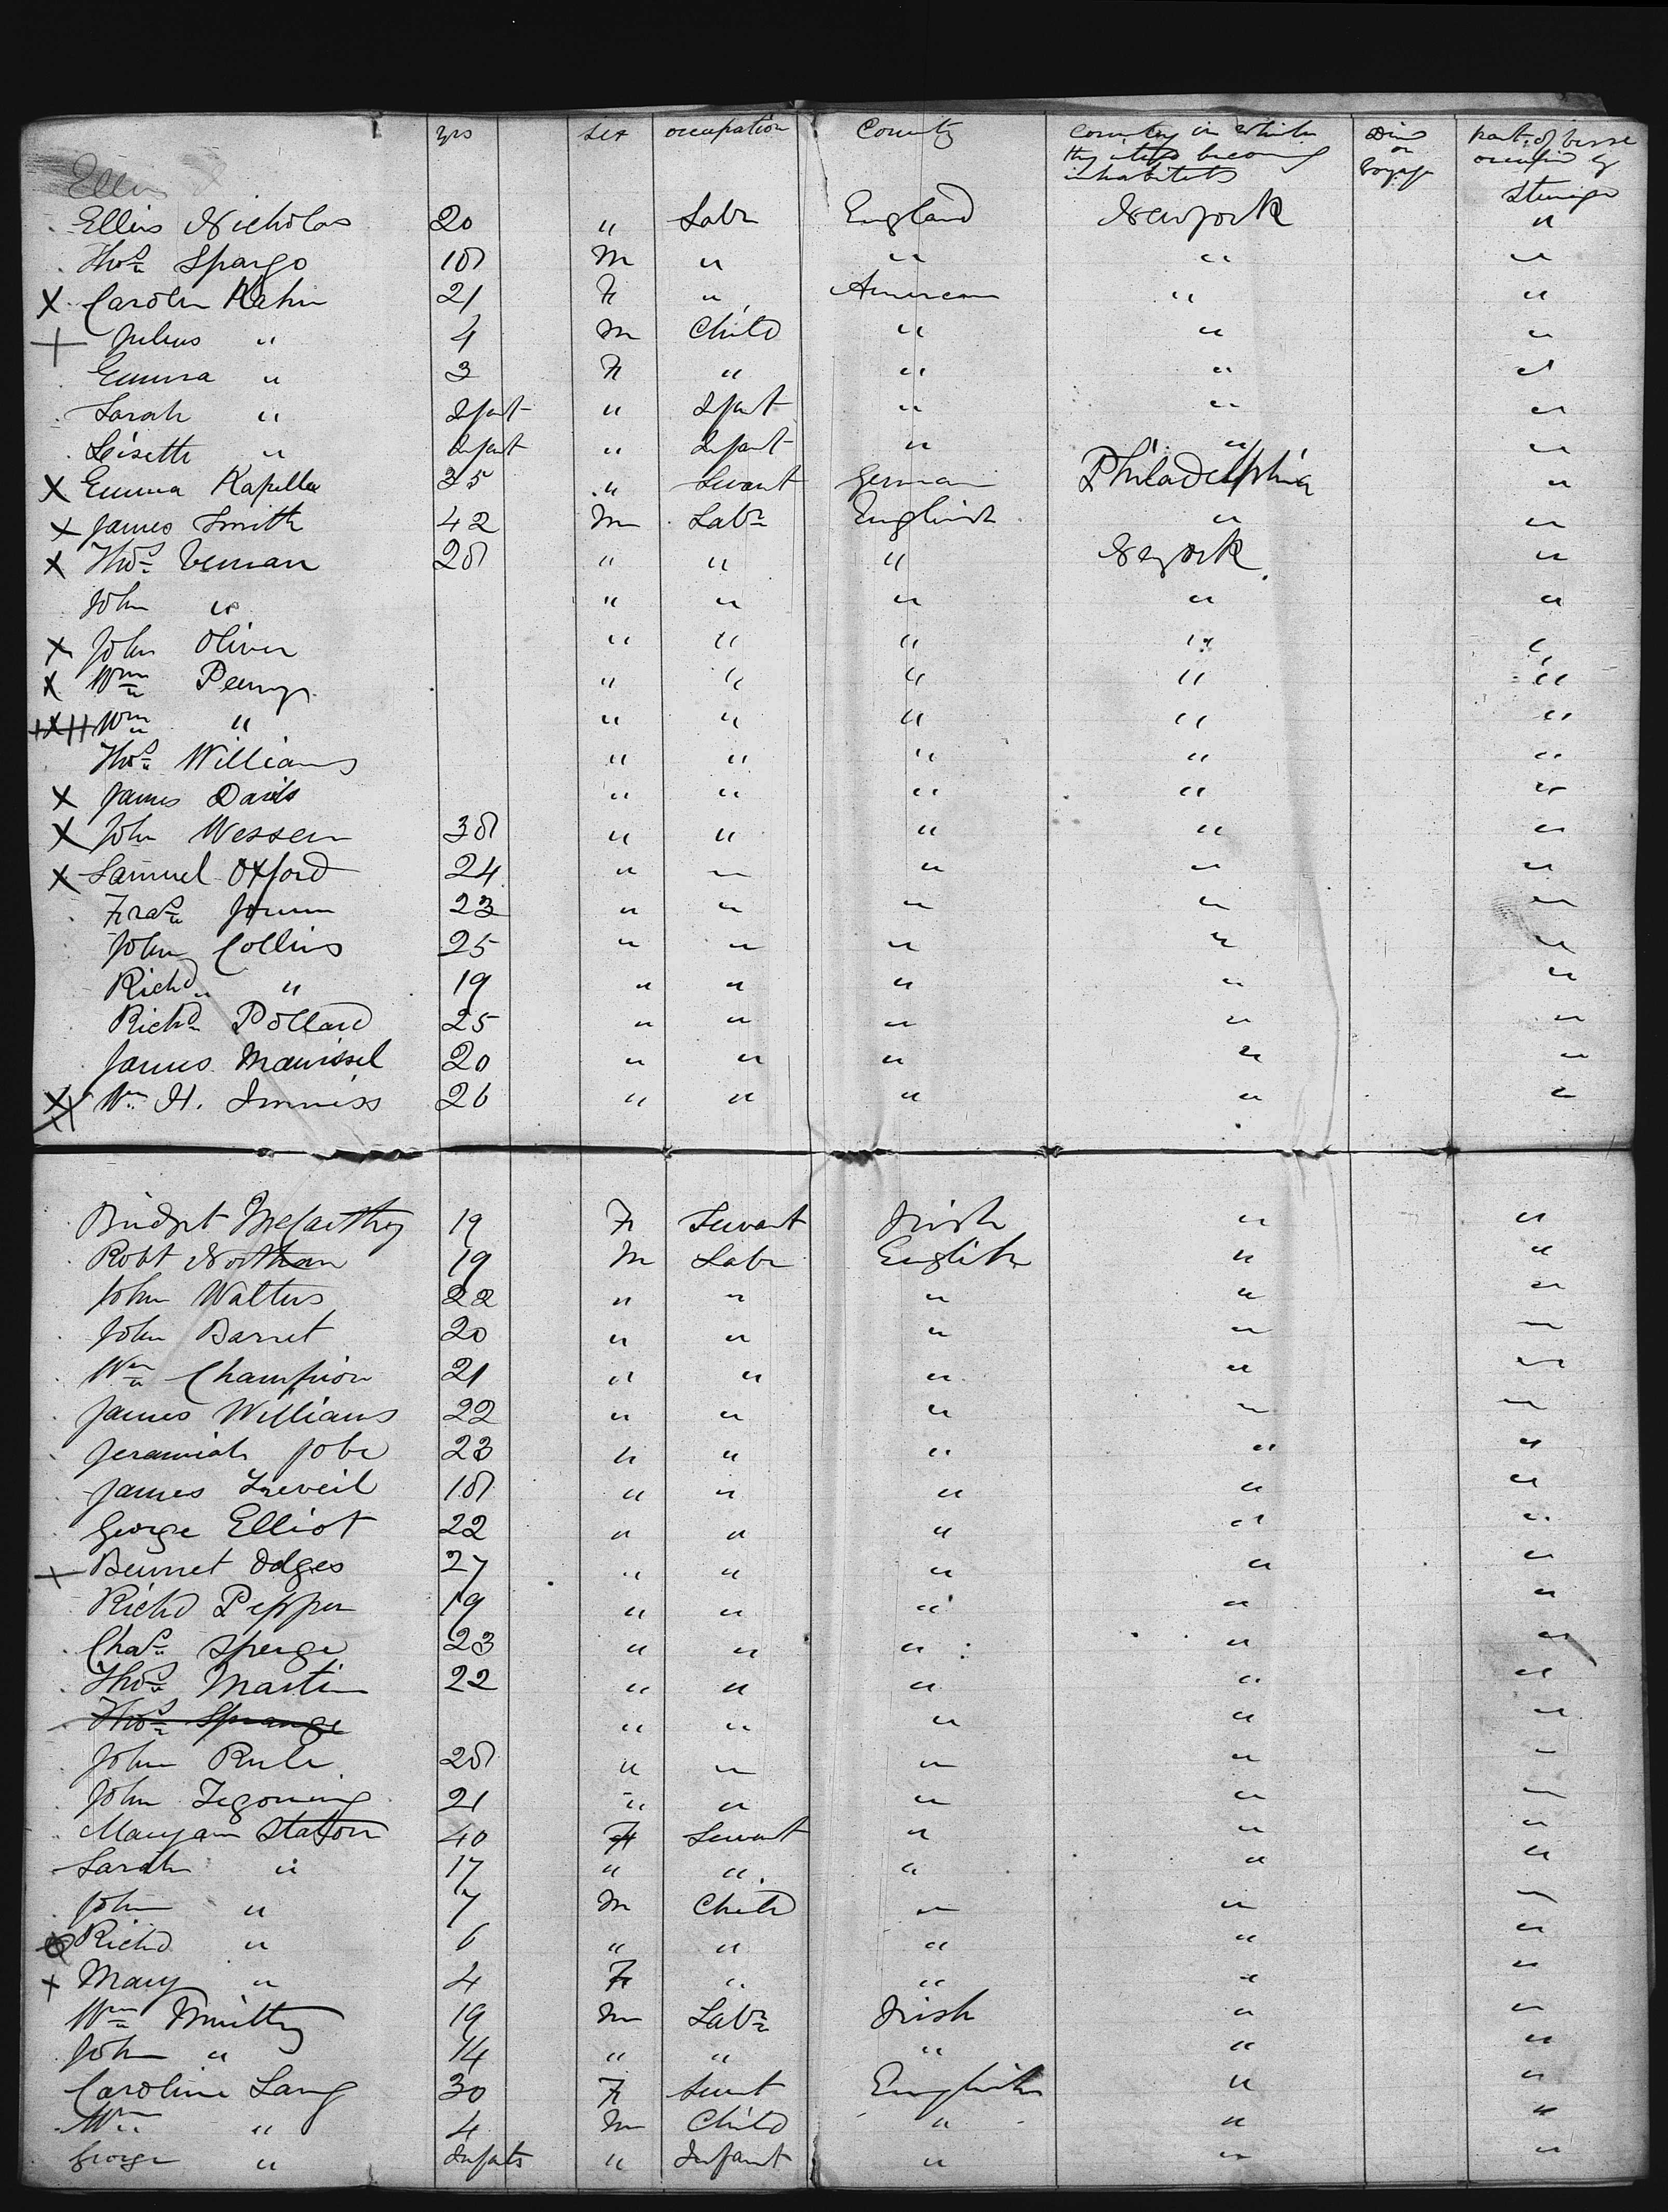 yrs sex occupation County Country in which they intend becoming inhabitets Died on Voyage part of vessel occupied by
Ellis Steerage
Ellis Nicholas 20 " Labr England Newyork "
Thos Spargo 18 M " " " "
X Carolin Kahn 21 F " American " "
+ Julius " 4 M Child " " "
Emma " 3 F " " " "
Sarah " Infant " Infant " " "
Lisette " Infant " Infant " " "
X Emma Kapella 35 " Servant German Philadelphia "
X James Smith 42 M Labr English " "
X Thos Veman 28 " " " Neyork "
John " " " " " "
X John Oliver " " " " "
X Wm Penny " " " " "
Wm " " " " " "
Thos Williams " " " " "
X James Davis " " " " "
X John Wessen 38 " " " " "
X Samuel Oxford 24 " " " " "
Fras 23 " " " " "
John Collins 25 " " " " "
Richd " 19 " " " " "
Richd Pollard 25 " " " " "
James 20 " " " " "
X Wm H. Inniss 26 " " " " "
Bridget McCarthy 19 F Servant Irish " "
Robt Northan 19 M Labr English " "
John Walters 22 " " " " "
John Barret 20 " " " " "
Wm Champion 21 " " " " "
James Williams 22 " " " " "
Jeramiah Jobe 23 " " " " "
James Treveil 18 " " " " "
George Elliot 22 " " " " "
+ Bennet Odges 27 " " " " "
Richd Pepper 19 " " " " "
Chas Sperge 23 " " " " "
Thos Martin 22 " " " " "
Thos Sprange " " " " "
John Rule 28 " " " " "
John Tegoning 21 " " " " "
Maryann Staton 40 F Servant " " "
Sarah " 17 " " " " "
John " 7 M Child " " "
Richd " 6 " " " " "
+ Mary " 4 F " " " "
Wm 19 M Labr Irish " "
John " 14 " " " " "
Caroline Lang 30 F Servt English " "
Wm " 4 M Child " " "
George " Infants " Infant " " "